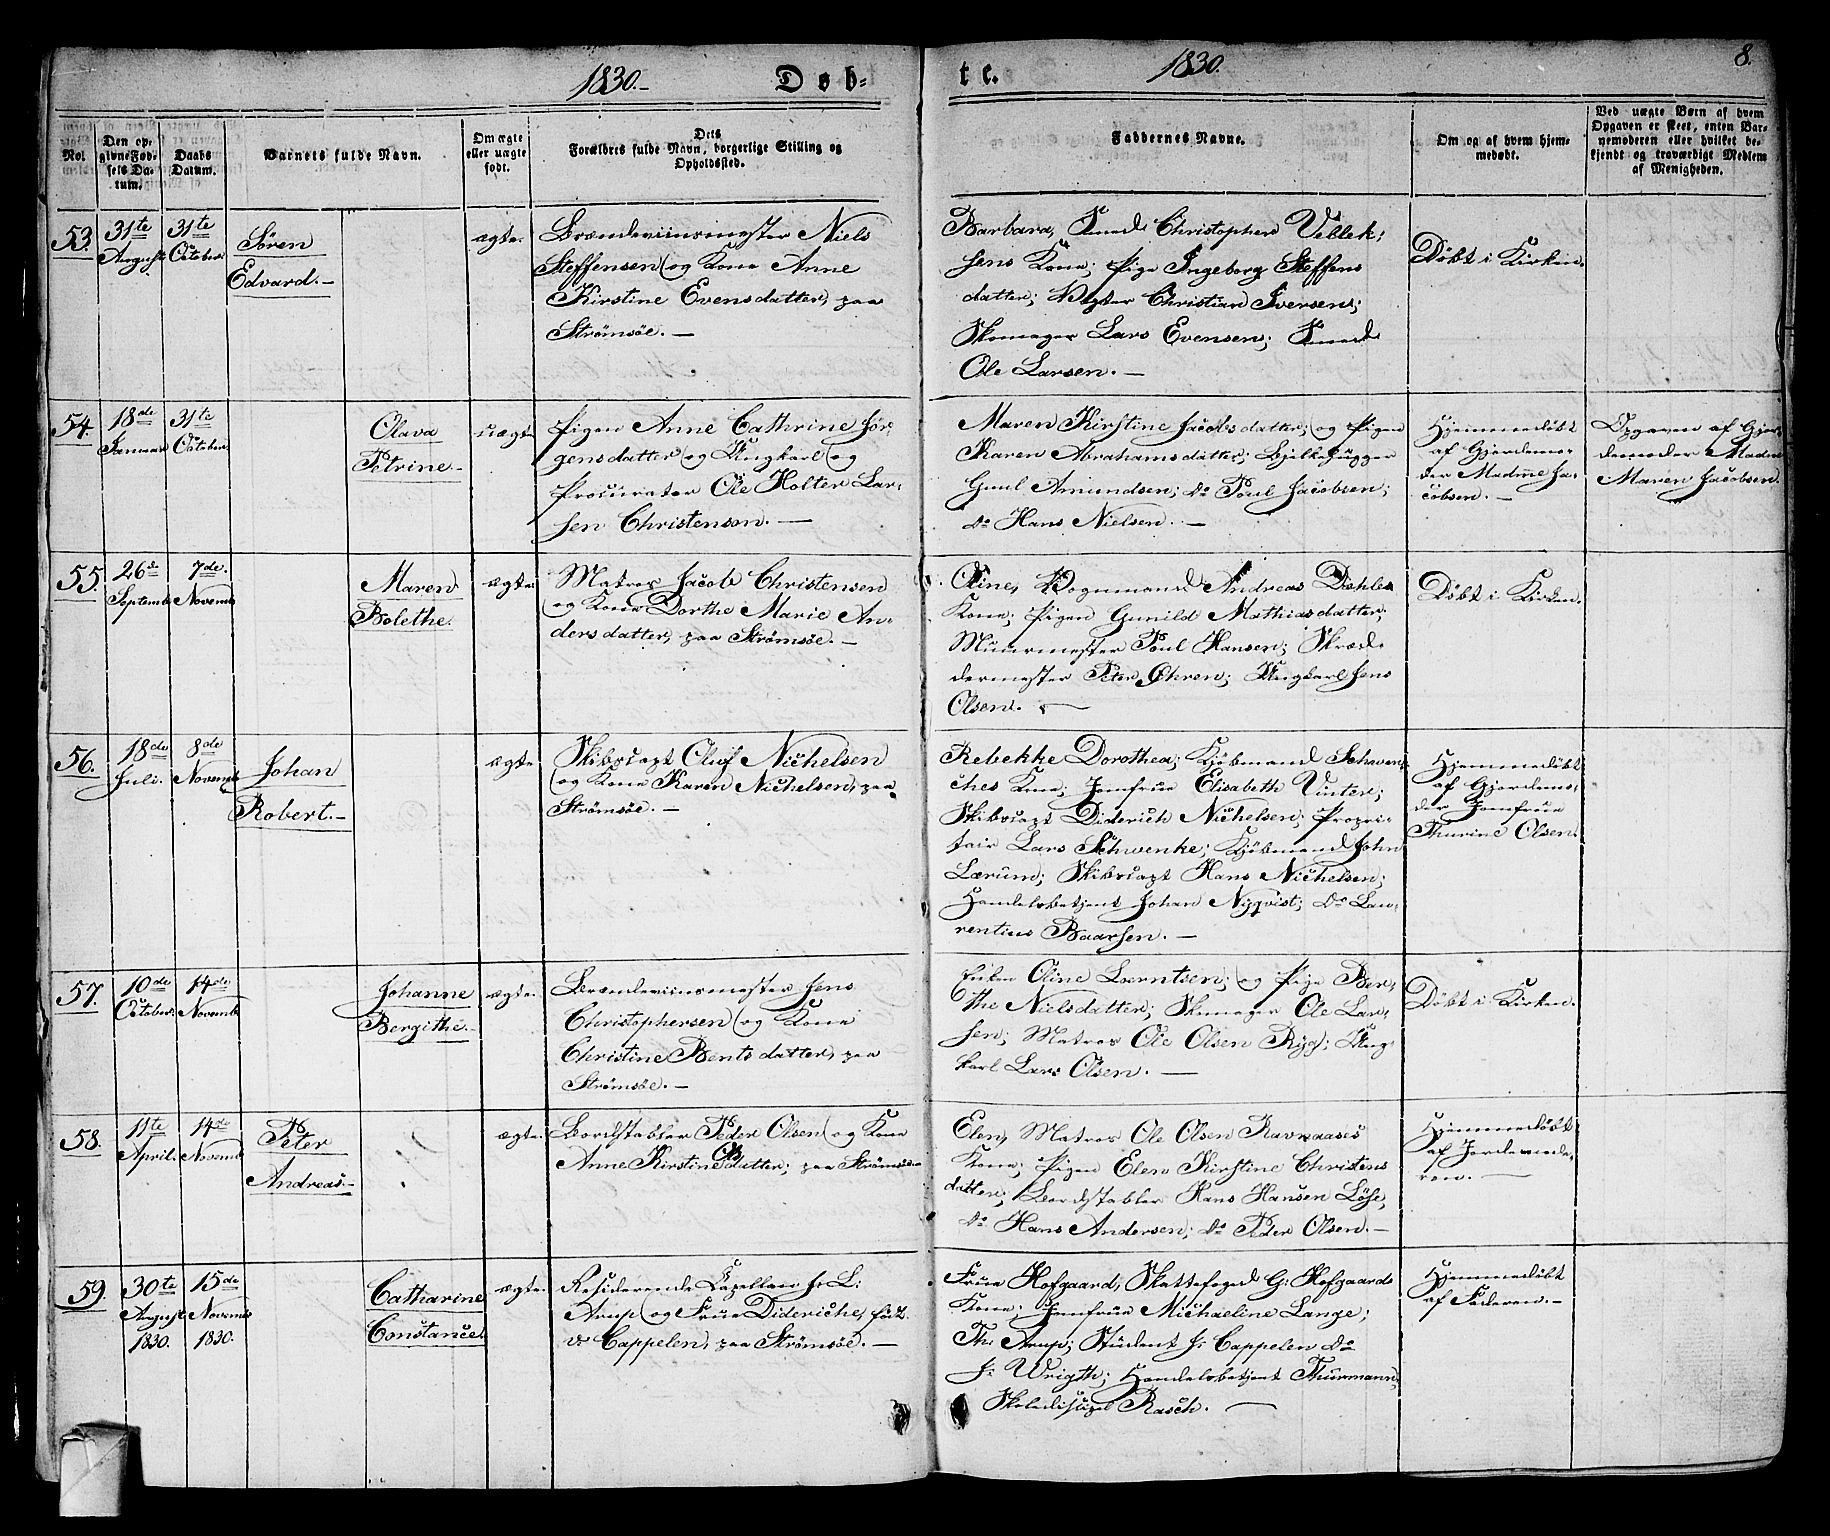 1830.- Døb-
te. 1830. 8.
No.
Den op-
givne Fød-
sels Da-
tum.
Daabs
Datum.
Barnets fulde Navn.
Om ægte
eller uægte
født.
Dets
Forældres fulde Navn, borgerlige Stilling og
Opholdssted.
Faddernes Navne.
Om og af hvem hjem-
medøbt.
Ved uægte Børn af hvem
Opgaven er skeet, enten Bar-
nemoderen eller hvilket be-
kjendt og troværdigt Medlem
af Menigheden.
53.
31te
August
31te
October
Søren
Edvard.-
ægte.
Brændeviinsmester Niels
Steffensen og Kone Anne
Kirstine Evensdatter, paa
Strømsøe.-
Barbara, Smed Christopher Vellek-
sens Kone; Pige Ingeborg Steffens
datter; Vegter Christian Iversen;
Skomager Lars Evensen; Smed
Ole Larsen.-
Døbt i Kirken.
54.
18de
Januar
31te
October
Olava
Petrine.-
uægte.
Pigen Anne Cathrine Jør-
gensdatter og Ungkarl og
Procurator Ole Holter Lar-
sen Christenson.-
Maren Kirstine Jacobsdatter; og Pigen
Karen Abrahamsdatter; Bjelkehugger
Guul Amundsen; do Poul Jacobsen;
do Hans Nielsen.-
Hjemmedøbt
af Gjordemo-
der Madme Ja-
cobsen.-
Opgaven af Gjor-
demoder Madm
Maren Jacobsen
55.
26de
Septemb
7de.
Novemb
Maren
Bolethe.
ægte.
Matros Jacob Christensen
og Kone Dorthe Marie An-
dersdatter, paa Strømsøe.-
Oline, Vognmand Andreas Dæhles
Kone; Pigen Gunild Mathiasdatter;
Muurmester Poul Hansen; Skræd-
dermester Peter Øhren; Ungkarl Jens
Olsen.-
Døbt i Kirken.
56.
18de
Juli.
8de
Novemb
Johan
Robert.-
ægte.
Skibscapt Oluf Nichelsen
og Kone Karen Nichelsen, paa
Strømsøe.-
Rebekke Dorothea; Kjøbmand Schwen-
ches Kone; Jomfrue Elisabeth Vinter;
Skibscapt Diderich Nichelsen; Propri-
tair Lars Schwenke; Kjøbmand John
Lærum; Skibscapt Hans Nichelsen;
Handelsbetjent Johan Nyqvist; do Lau-
rentius Baarsen.-
Hjemmedøbt
af Gjordemo-
der Jomfrue
Thurine Olsen.
57.
10de
October.
14de
Novemb
Johanne
Bergithe.-
ægte.
Brændeviinsmester Jens
Christophersen og Kone
Christine Bentsdatter, paa
Strømsøe.-
Enken Oline Berntsen; og Pige Ber-
the Nielsdatter; Skomager Ole Lar-
sen; Matros Ole Olsen Ryg; Ung-
karl Lars Olsen.-
Døbt i Kirken.
58.
11te
April.
14de
Novemb
Peter
Andreas.-
ægte.
Bordstabler Peder Olsen og Kone
Anne Kirstine Olsdatter; paa Strømsøe
Elen, Matros Ole Olsen Ravnaases
Kone; Pigen Elen Kirstine Christens
datter; Bordstabler Hans Hansen Løse,
do Hans Andersen; do Peder Olsen.-
Hjemmedøbt
af Jordemode-
ren.-
59.
30te
August
1830.
15de
Novemb
1830.
Catharine
Constance.
ægte.
Residerende Capellan hr L:
Arup og Frue Dideriche, født
v. Cappelen, paa Strømsøe.-
Frue Hofgaard, Skattefoged G: Hofgaards
Kone; Jomfrue Michaeline Lange;
Th: Arup; Student J: Cappelen do
J: Wrigth; Handelsbetjent Thurmann,
Skolediscipel Rasch.-
Hjemmedøbt
af Faderen.-